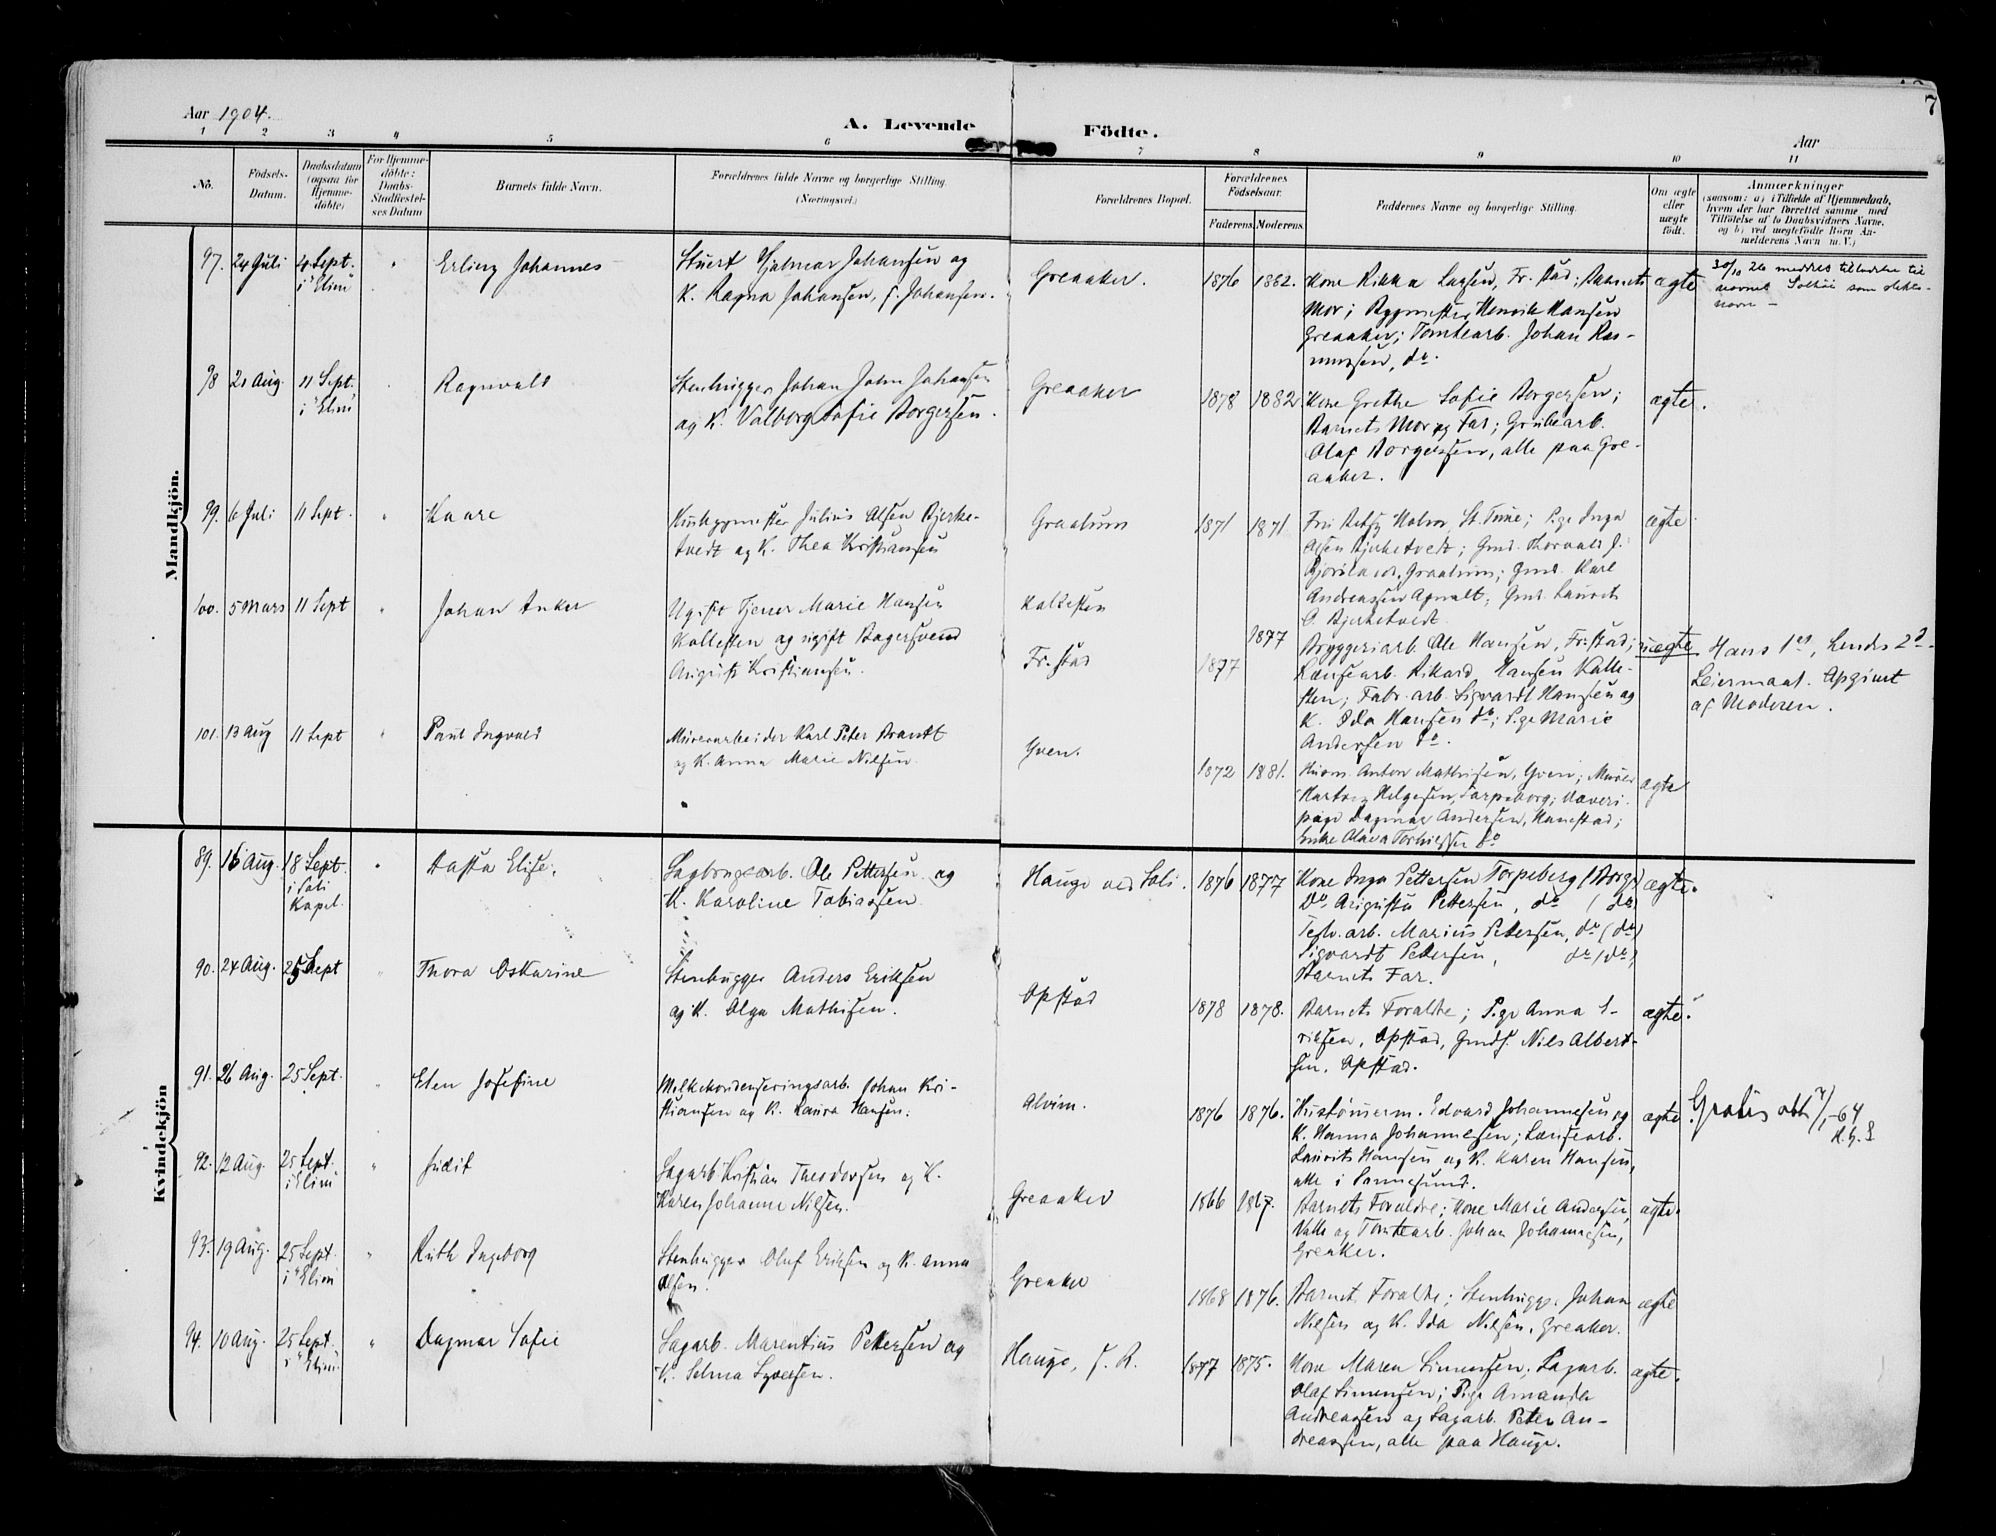 7
Aar 1904.
A. Levende Födte.
Aar
1 2 3 4 5 6 7 8 9 10 11
No.
Födsels-Datum.
Daabsdatum (ogsaa for Hjemme-döbte)
For Hjemme-döbte: Daabs-Stadfæstel-ses Datum
Barnets fulde Navn.
Forældrenes fulde Navne og borgerlige Stilling. (Næringsvei.)
Forældrenes Bopæl.
Forældrenes Födselsaar.
Faderens. Moderens.
Faddernes Navne og borgerlige Stilling.
Om ægte eller uægte födt.
Anmærkninger
(saasom: a) i Tilfælde af Hjemmedaab, hvem der har forrettet samme, med Tilföielse af to Daabsvidners Navne, og b) ved uægtefödte Börn An-melderens Navn m. V.)
Mandkjön.
97. 24 Juli 4 Sept. i "Elim" " Erling Johannes
Hjalmar Johansen og
K. Ragna Johansen, f. Johansen.
Greaaker. 1876 1882.
Kone Rikka Larsen, Fr.stad; Barnets
Mor; Bygmester Henrik Hansen
Greaaker; Tomtearb. Johan Ras-
mussen, do.
ægte
30/10 26 meddelt tilladelse til
navnet som slekts-
navn –
98 21 Aug. 11 Sept. i "Elim" Ragnvald
Stenhugger Johan John Johansen
og K. Valborg Sofie Borgersen.
Greaaker 1878 1882
Kone Grethe Sofie Borgersen;
Barnets Mor og Far; Grubearb.
Olaf Borgersen, alle paa Gre-
aaker.
ægte.
99. 6 Juli 11 Sept. " Kaare
Husbygmester Julius Olsen Bjerke-
tvedt og K. Thea Kristiansen
Graalum 1871 1871.
Fru Betsy Holm, St. Tune; Pige Inga
Olsen Bjerketvedt; Gmd. Thorvald J.
Graalum; Gmd. Karl
Andreassen Agnalt; Gmd. Laurits
O. Bjerketvedt.
ægte
100. 5 Mars 11 Sept " Johan Anker
Ugift Tjener Marie Hansen
Kallesten og ugift Bagersvend
August Kristiansen.
Kallesten
Fr.stad
1877 1877
Bryggeriarb. Ole Hansen, Fr.stad;
Lænsearb. Rikard Hansen Kalle-
sten; Fabr.arb. Sigvardt Hansen og
K. Ida Hansen do; Pige Marie
Andersen do.
uægte
Hans 1ste, hendes 2d
Leiermaal. Opgivet
af Moderen.
101. 13 Aug 11 Sept " Paul Ingvald
Murerarbeider Karl Peter Brandt
og K. Anna Marie Nilsen.
Yven. 1872 1881.
Husm. Anton Mathisen, Yven; Murer
Hartvig Helgesen, Torpeborg; Væveri-
pige Dagmar Andersen, Hanestad;
Enke do
ægte
Kvindekjön
89. 16 Aug. 18 Sept. i Soli Kapel. " Aasta Elise.
Sagbrugsarb. Ole Pettersen og
K. Karoline Tobiassen.
Hauge ved Soli. 1876 1877
Kone Inga Pettersen Torpeberg (Borge)
Do Augusta Pettersen, do (do)
Teglv.arb. Marius Petersen, do (do)
Sigvardt Petersen, do (do),
Barnets Far.
ægte.
90. 24 Aug. 25 Sept " Thora Oskarine
Stenhugger Anders Eriksen
og K. Olga Mathisen.
Opstad 1878 1878.
Barnets Foraldre; Pige Anna E-
riksen, Opstad, Gmds. Nils Albert-
sen, Opstad.
ægte.
91. 26 Aug. 25 Sept. " Elen Josefine
Melkekondenseringsarb. Johan Kri-
stiansen og K. Laura Hansen.
Alvim. 1876 1876.
Hustømerm. Edvard Johannesen og
K. Hanna Johannesen; Lænsearb.
Laurits Hansen og K. Karen Hansen,
alle i Sannesund.
ægte
Gratis att 7/1-64
92. 12 Aug. 25 Sept. i "Elim" " Judit
Sagarb. Kristian Theodorsen og K.
Karen Johanne Nilsen.
Greaaker 1866 1867.
Barnets Foraldre; Kone Marie Andersen,
Valle og Tomtearb. Johan Johannesen,
Greaker.
ægte.
93. 19 Aug. 25 Sept. i "Elim" " Ruth Ingeborg
Stenhugger Oluf Eriksen og K. Anna
Olsen.
Greaker 1868 1876.
Barnets Foraldre; Stenhugg. Johan
Nilsen og K. Ida Nilsen, Greaker.
ægte
94. 10 Aug. 25 Sept. i "Elim" " Dagmar Sofie
Sagarb. Marentius Pettersen og
K. Selma Syversen.
Hauge, S. R. 1877 1875.
Kone Maren Simensen; Sagarb.
Olaf Simensen; Pige Amanda
Andreassen og Sagarb. Peter An-
dreassen, alle paa Hauge.
ægte.